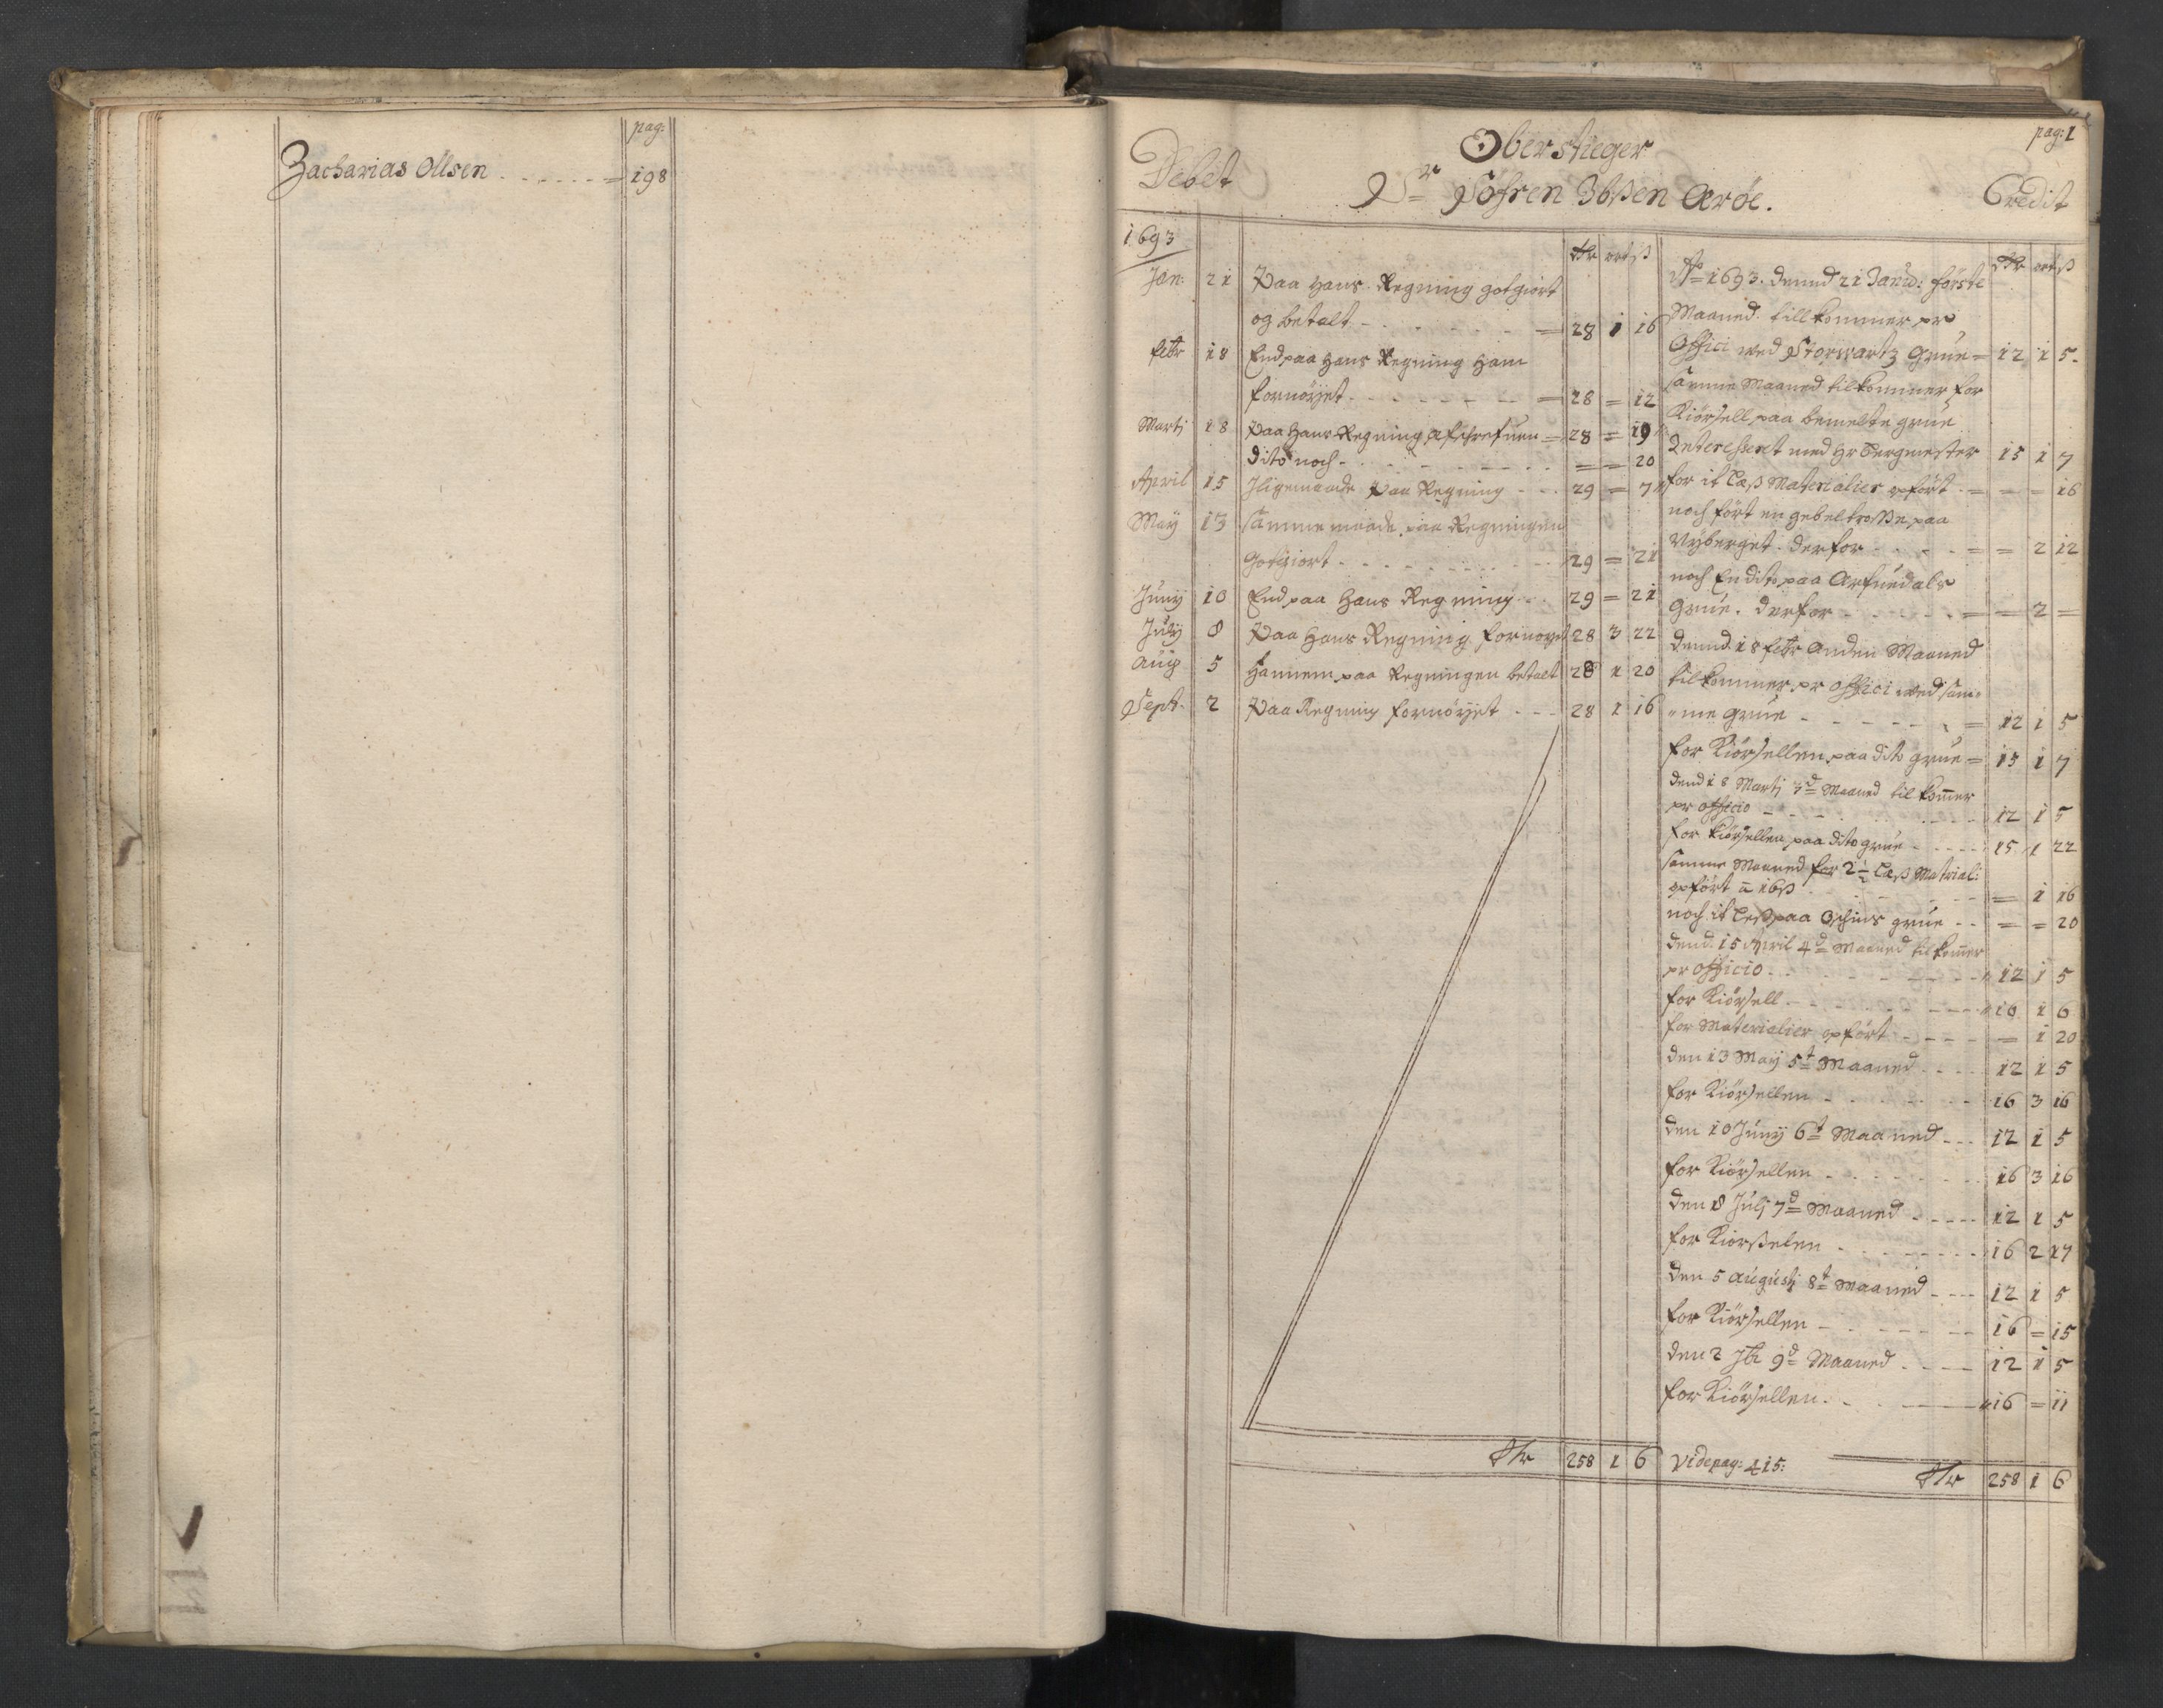 pag:
Zacharias Ollsen - - - - - - = 198
pag: 1
Oberstieger
Debet Sr Söfren Ibßen Aröe. Credit
1693
Rdr ort ß
Jan: 21 Paa Hans Regning gotgiort
og betalt - - - - - - = 28 1 16
febr 18 End paa Hans Regning Ham
fornöyet - - - - - - = 28 = 12
Martj 18 Paa Hans Regning afschrefuen = 28 = 19
dito noch - - - - - - = = 20
April 15 Jligemaade Paa Regning - - - 29 = 7
May 13 samme maade paa Regningen
Gotgiort - - - - - - 29 = 21
Juny 10 End paa Hans Regning - - 29 = 21
July 8 Paa Hans Regning fornoyet 28 3 22
Aug 5 Hannem paa Regningen betalt 28 1 20
Sept. 2 Paa Regning fornöyet - - - 28 1 16
Rdr 258 1 6
Rdr ort ß
Ao 1693. dennd 21 Janu: förste
Maaned. tillkommer pr
Offici wed Storwartz Grue = 12 1 5
samme Maaned tilkommer for
Kiörsell paa bemelte grue
Interesseret med Hr Bergmester 15 1 7
for it Læß Materialier opfört - = - - 16
noch fört en gebeltroße paa
Nyberget. derfor - - - - = = 2 12
noch En dito paa Arfuedals
Grue. derfor - - - - - = = 2 =
dennd 18 febr Anden Maaned
tilkommer pr offici wed sam=
"me grue - - - - - - = 12 1 5
for Kiörsellen paa dito grue = 15 1 7
dend 18 Martj 3d Maaned til kommer
pr officio - - - - - - 12 1 5
for kiörsellen paa dito grue - - - - 15 1 22
samme Maaned for 2½ Læß Matrial:
opfört a 16ß - - - - = 1 16
noch it Læß paa grue - - = = 20
dend. 15 April 4d Maaned til kommer
pr officio - - - - - - 12 1 5
for Kiörsell - - - - - - 16 1 6
for Materialier opfört - - - - = 1 20
den 13 May 5t Maaned - - - - 12 1 5
for Kiörsellen - - - - - - 16 3 16
den 10 Juny 6t Maaned - - - 12 1 5
for Kiörsellen - - - - - - 16 3 16
den 8 Julj 7d Maaned - - - - 12 1 5
for Kiörßelen - - - - - - 16 2 17
den 5 Augustj 8t Maaned - - - 12 1 5
for Kiörsellen - - - - - - 16 = 15
den 2 7br 9d Maaned - - - - 12 1 5
for Kiörsellen - - - - - - 16 = 11
Vide pag: 415:
Rdr 258 1 6